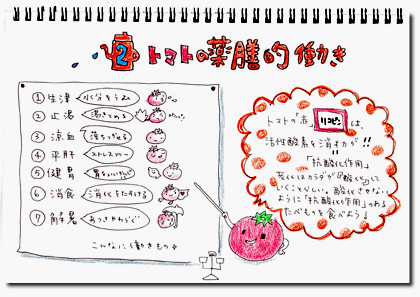 2 トマトの薬膳的働き
① 生津 水分をうむ
② 止渇 渇きとめる
③ 涼血 落ちつかせる
④ 平肝 ストレスフリー
⑤ 健胃 胃をいいかんじ
⑥ 消食 消化をたすける
⑦ 解暑 あつさやわらぐ
こんなに働きもの
トマトの赤、リコピンは、
活性酸素を消す力が!!
「抗酸化作用」
老化はカラダが「酸化」して
いくことらしい。酸化させない
ように「抗酸化作用」のある
たべものを食べよう!